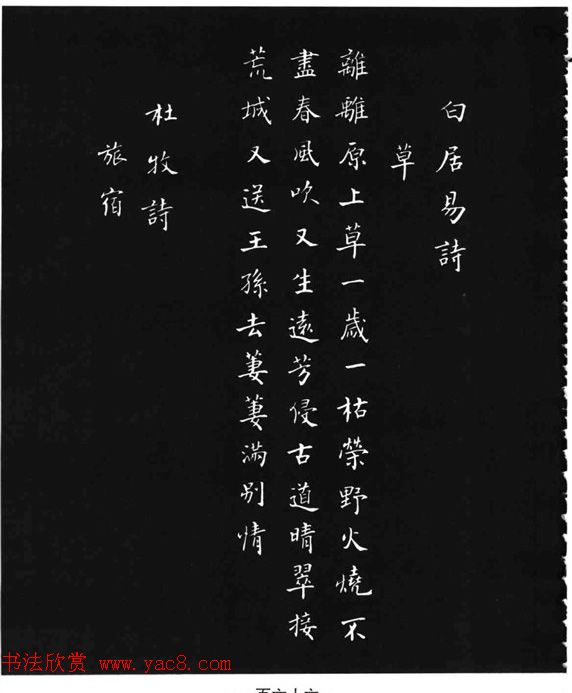 白居易詩
草
離離原上草一歲一枯榮野火燒不
盡春風吹又生遠芳侵古道晴翠接
荒城又送王孫去萋萋滿別情
杜牧詩
旅宿
书法欣赏 www.yac8.com